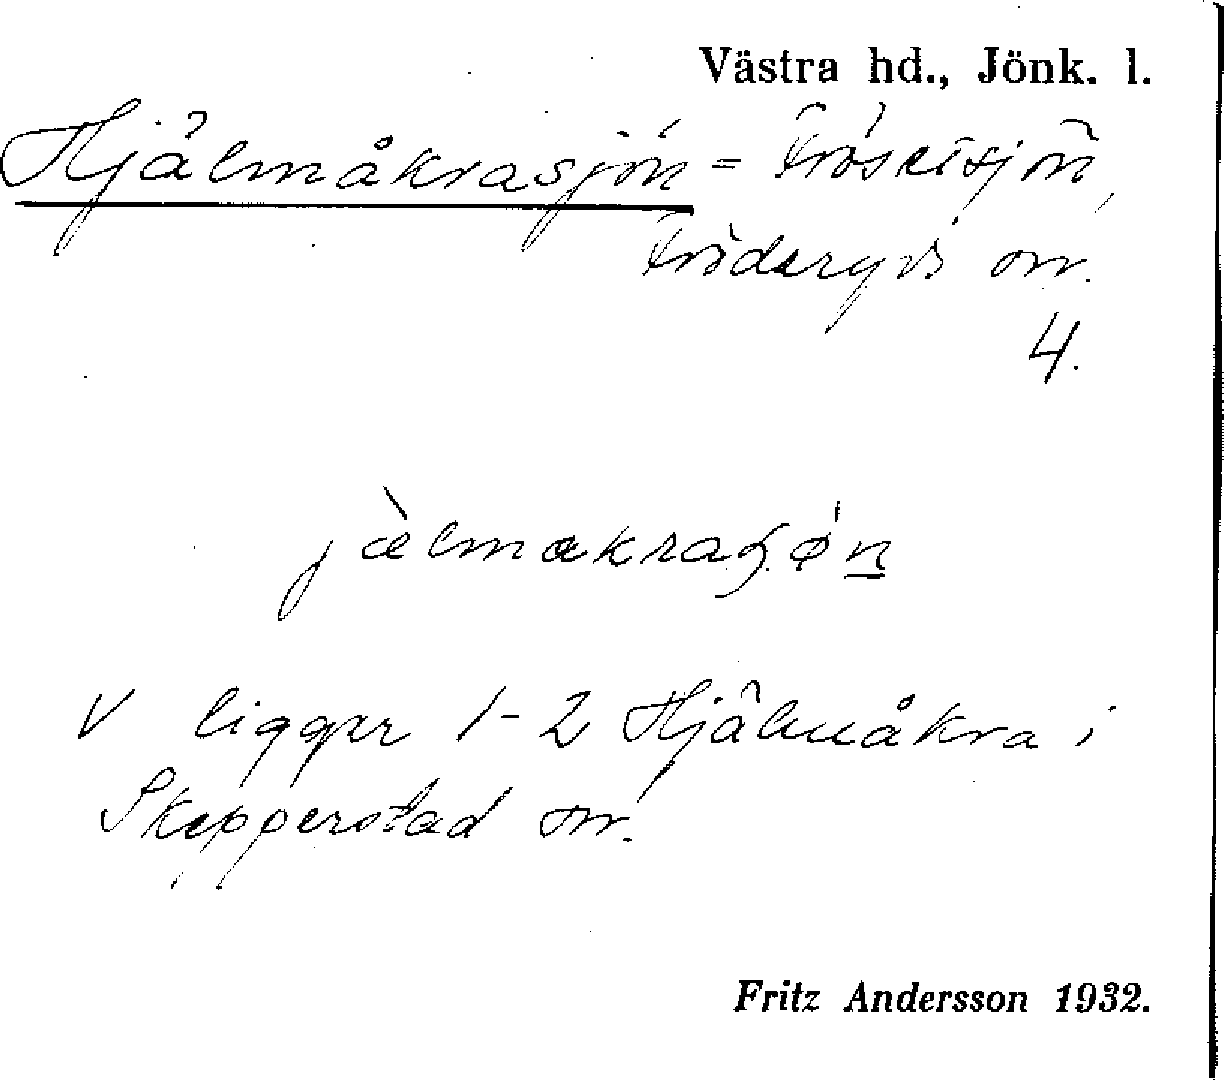 Västra hd., Jönk. l.
Hjälmåkrasjön = Fröseetsjön,
Fröderyds sn.
4.
jæ̀lmakraʂø̀n̲
V ligger 1-2 Hjälmåkra i
Skepperstad sn.
Fritz Andersson 1932.